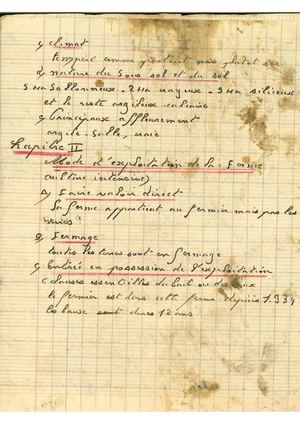 c) climat
Tempéré comme partout mais plutôt sec
d) nature du sous sol et du sol
5 Ha Sablonneux - 2 Ha - 5 Ha siliceux
et le reste argileux calcaire
e) affleurement
argile - sable,
Chapitre II
Mode d'exploitation de la Ferme
culture intensive)
A) Faire valoir direct
La ferme appartient au fermier mais pas les
terres
B) Fermage
toutes les terres sont en fermage
c) Entrée en possession de l'exploitation
clauses essentielles du bail ou des
le fermier est dans cette ferme depuis 1.934
les baux sont de 12 ans